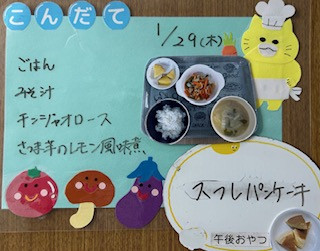 こんだて
1/29(木)
ごはん
みそ汁
チンジャオロース
さつま芋のレモン風味煮
スフレパンケーキ
午後おやつ